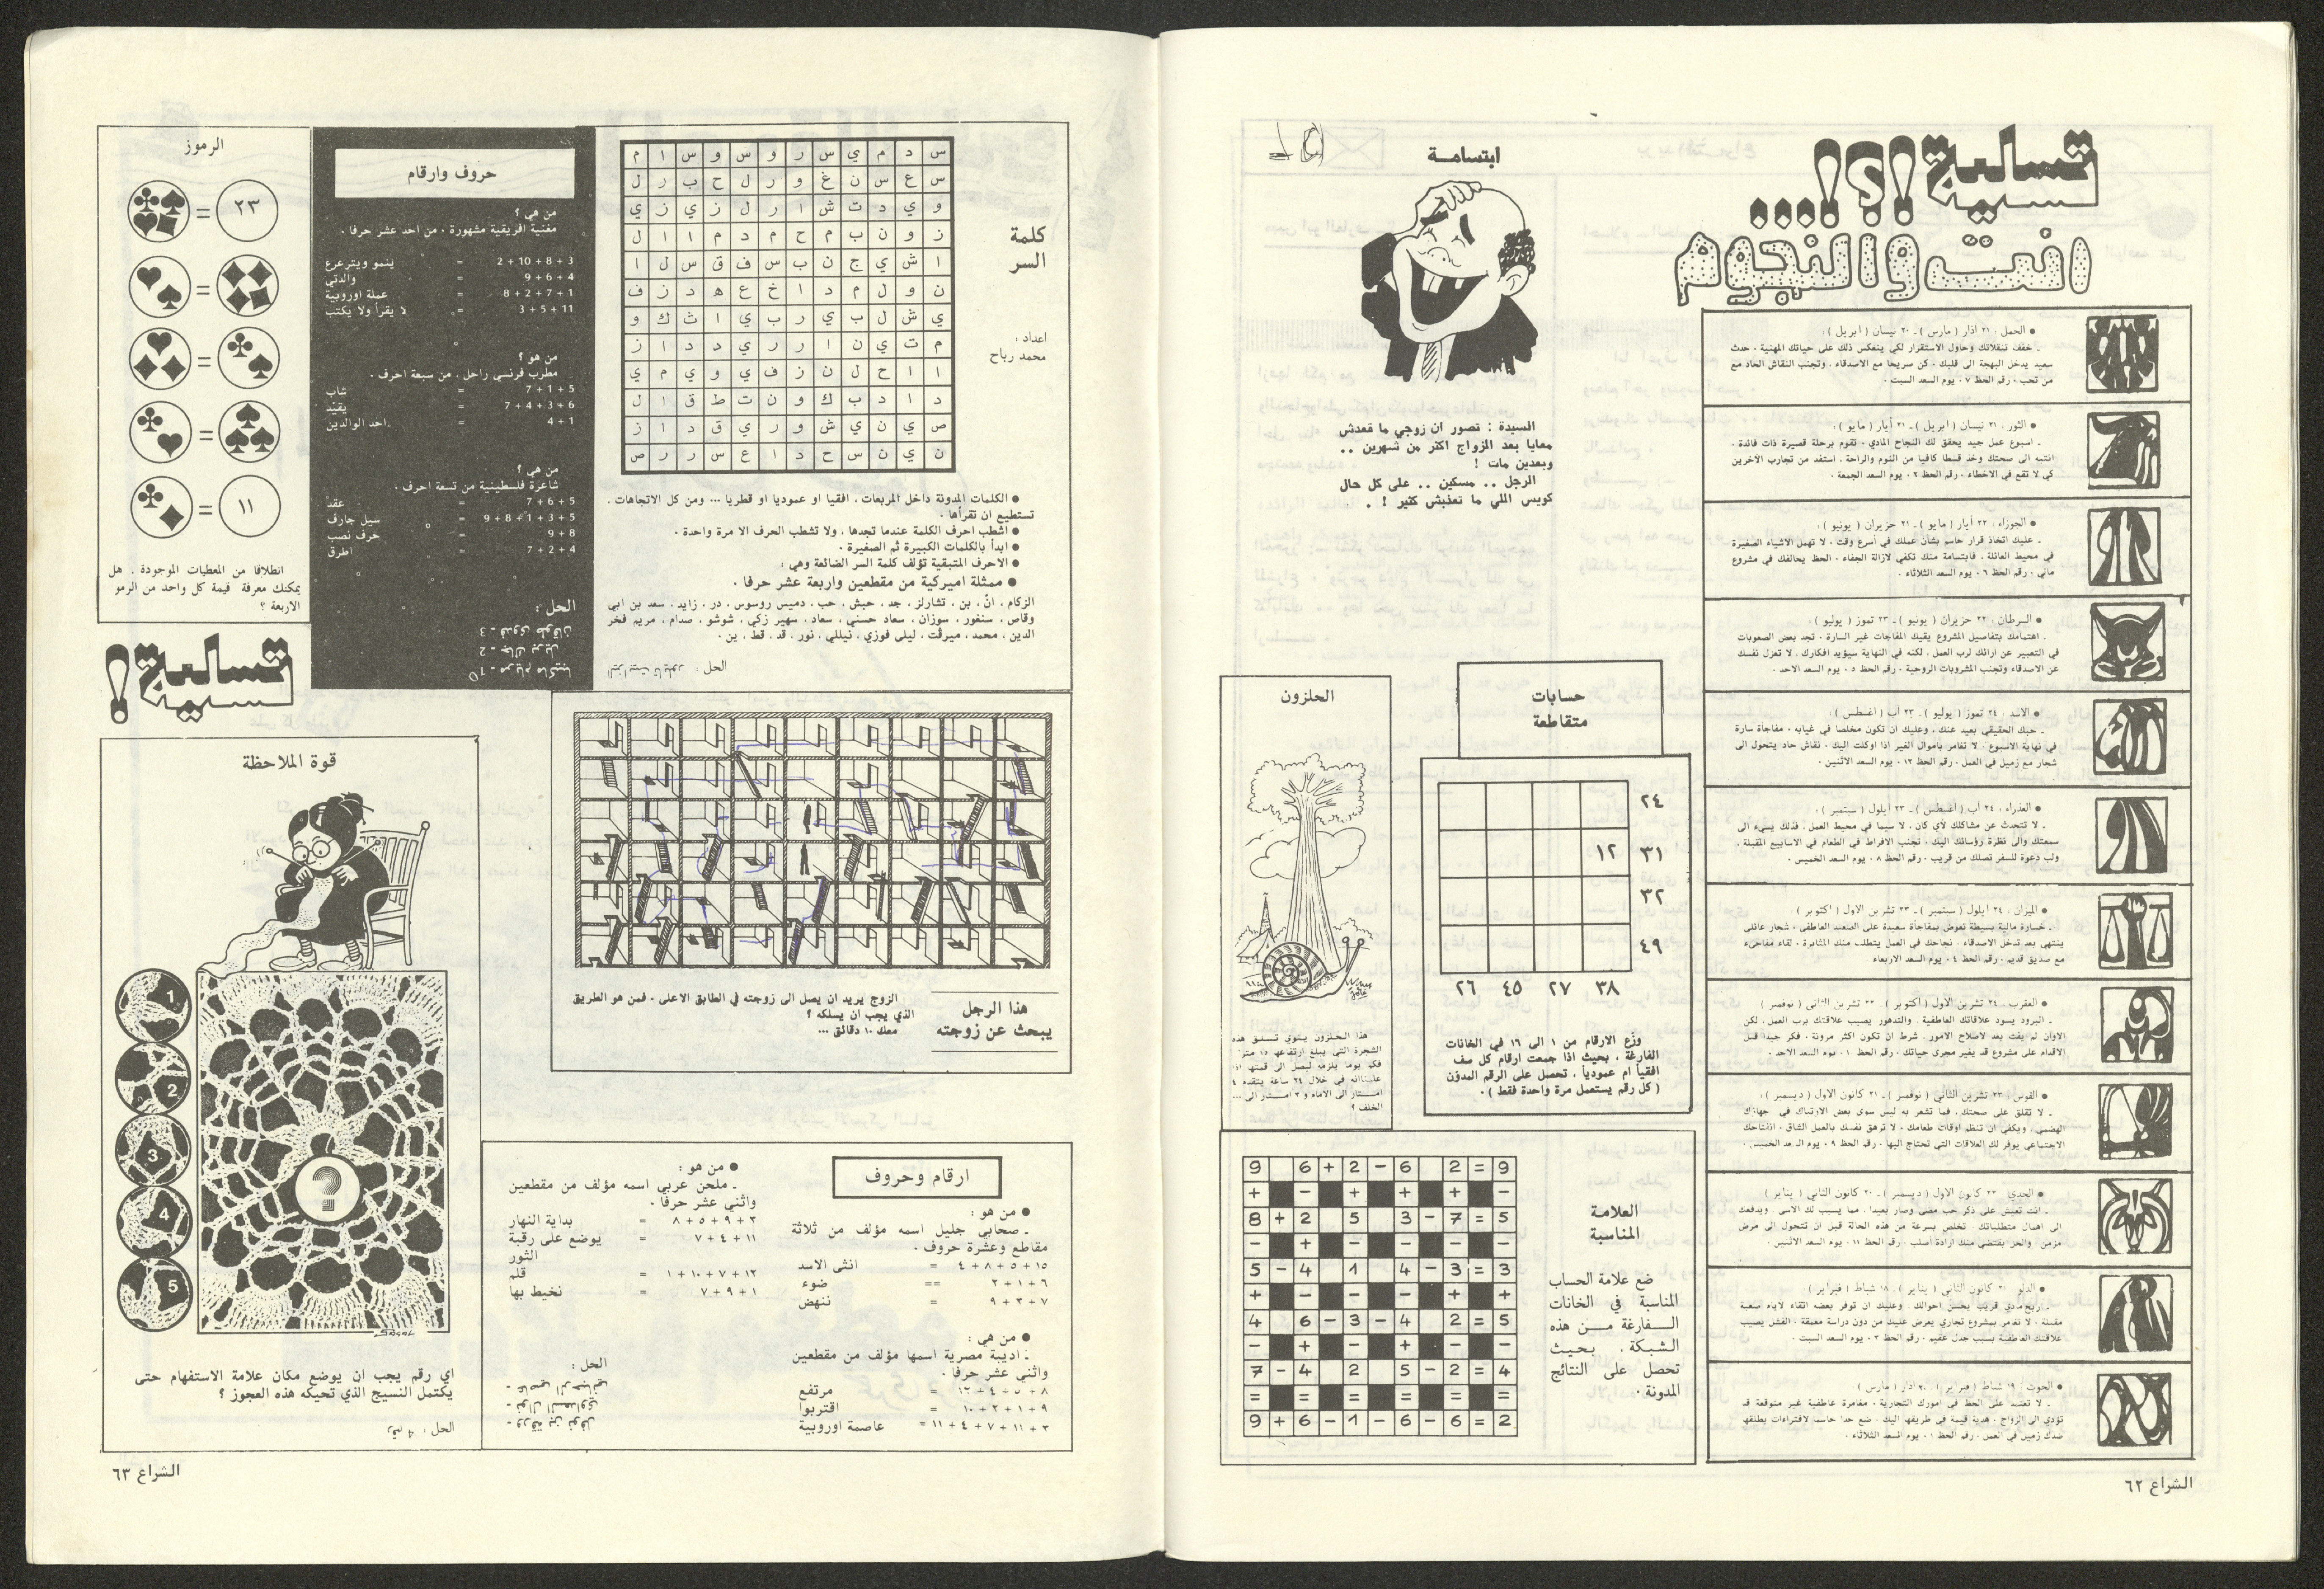 تسلية !؟!...
انت والنجوم
● الحمل : ٢١ اذار ( مارس ) ـ ٢٠ نيسان ( ابريل ) :
ـ خفف تنقلاتك وحاول الاستقرار لكي ينعكس ذلك على حياتك المهنية . حدث
سعيد يدخل البهجة الى قلبك . كن صريحا مع الاصدقاء . وتجنب النقاش الحاد مع
من تحب . رقم الحظ ٧ . يوم السعد السبت .
● الثور : ٢١ نيسان ( ابريل ) ـ ٢١ أيار ( مايو ) :
ـ اسبوع عمل جيد يحقق لك النجاح المادي . تقوم برحلة قصيرة ذات فائدة .
انتبه الى صحتك وخذ قسطا كافيا من النوم والراحة . استفد من تجارب الآخرين
كي لا تقع في الاخطاء . رقم الحظ ٢ . يوم السعد الجمعة .
● الجوزاء : ٢٢ أيار ( مايو ) ـ ٢١ حزيران ( يونيو ) :
ـ عليك اتخاذ قرار حاسم بشأن عملك في أسرع وقت . لا تهمل الاشياء الصغيرة
في محيط العائلة . فابتسامة منك تكفي لازالة الجفاء . الحظ يحالفك في مشروع
مالي . رقم الحظ ٦ . يوم السعد الثلاثاء .
● السرطان : ٢٢ حزيران ( يونيو ) ـ ٢٣ تموز ( يوليو ) :
ـ اهتمامك بتفاصيل المشروع يقيك المفاجات غير السارة . تجد بعض الصعوبات
في التعبير عن ارائك لرب العمل . لكنه في النهاية سيؤيد افكارك . لا تعزل نفسك
عن الاصدقاء وتجنب المشروبات الروحية . رقم الحظ ٥ . يوم السعد الاحد .
● الاسد : ٢٤ تموز ( يوليو ) ـ ٢٣ اب ( اغسطس ) :
ـ حبك الحقيقي بعيد عنك . وعليك ان تكون مخلصا في غيابه . مفاجأة سارة
في نهاية الاسبوع . لا تغامر باموال الغير اذا اوكلت اليك . نقاش حاد يتحول الى
شجار مع زميل في العمل . رقم الحظ ١٢ . يوم السعد الاثنين .
● العذراء : ٢٤ اب ( اغسطس ) ـ ٢٣ أيلول ( سبتمبر ) :
ـ لا تتحدث عن مشاكلك لأي كان . لا سيما في محيط العمل . فذلك يسيء الى
سمعتك والى نظرة رؤسائك اليك . تجنب الافراط في الطعام في الاسابيع المقبلة .
ولب دعوة للسفر تصلك من قريب . رقم الحظ ٨ . يوم السعد الخميس .
● الميزان : ٢٤ ايلول ( سبتمبر ) ـ ٢٣ تشرين الاول ( اكتوبر ) :
ـ خسارة مالية بسيطة تعوض بمفاجأة سعيدة على الصعيد العاطفي . شجار عائلي
ينتهي بعد تدخل الاصدقاء . نجاحك في العمل يتطلب منك المثابرة . لقاء مفاجىء
مع صديق قديم . رقم الحظ ٤ . يوم السعد الاربعاء
● العقرب : ٢٤ تشرين الاول ( اكتوبر ) ـ ٢٢ تشرين الثاني ( نوفمبر ) :
ـ البرود يسود علاقاتك العاطفية . والتدهور يصيب علاقتك برب العمل . لكن
الاوان لم يفت بعد لاصلاح الامور . شرط ان تكون اكثر مرونة . فكر جيدا قبل
الاقدام على مشروع قد يغير مجرى حياتك . رقم الحظ ١٠ . يوم السعد الاحد .
● القوس : ٢٣ تشرين الثاني ( نوفمبر ) ـ ٢١ كانون الاول ( ديسمبر ) :
ـ لا تقلق على صحتك . فما تشعر به ليس سوى بعض الارتباك في جهازك
الهضمي . ويكفي ان تنظم اوقات طعامك . لا ترهق نفسك بالعمل الشاق . افتتاحك
الاجتماعي يوفر لك العلاقات التي تحتاج اليها . رقم الحظ ٩ . يوم السعد الخميس .
● الجدي : ٢٢ كانون الاول ( ديسمبر ) ـ ٢٠ كانون الثاني ( يناير ) :
ـ انت تعيش على ذكر حب مضى وصار بعيدا . مما يسبب لك الاسى . ويدفعك
الى اهمال متطلباتك . تخلص بسرعة من هذه الحالة قبل ان تتحول الى مرض
مزمن . والحر يقتضي منك ارادة اصلب . رقم الحظ ١١ . يوم السعد الاثنين .
● الدلو : ٢٠ كانون الثاني ( يناير ) ـ ١٨ شباط ( فبراير ) :
ـ ربح مادي قريب يحسن احوالك . وعليك ان توفر بعضه اتقاء لايام صعبة
مقبلة . لا تغامر بمشروع تجاري يعرض عليك من دون دراسة معمقة . الفشل يصيب
علاقتك العاطفية بسبب جدل عقيم . رقم الحظ ٣ . يوم السعد السبت .
● الحوت : ١٩ شباط ( فبراير ) ـ ٢٠ اذار ( مارس ) :
ـ لا تعتمد على الحظ في امورك التجارية . مغامرة عاطفية غير متوقعة قد
تؤدي الى الزواج . هدية قيمة في طريقها اليك . ضع حدا حاسما لافتراءات يطلقها
ضدك زميل في العمل . رقم الحظ ١ . يوم السعد الثلاثاء .
ابتسامة
السيدة : تصور ان زوجي ما قعدش
معايا بعد الزواج اكثر من شهرين ..
وبعدين مات !
الرجل .. مسكين .. على كل حال
كويس اللي ما تعذبش كثير ! .
حسابات
متقاطعة
٢٤
١٢ ٣١
٣٢
٤٩
٢٦ ٤٥ ٢٧ ٣٨
وزّع الارقام من ١ الى ١٦ في الخانات
الفارغة . بحيث اذا جمعت ارقام كل صف
افقياً ام عمودياً ، تحصل على الرقم المدوّن
( كل رقم يستعمل مرة واحدة فقط ) .
الحلزون
هذا الحلزون ينوي تسلق هذه
الشجرة التي يبلغ ارتفاعها ١٥ مترا
فكم يوما يلزمه ليصل الى قمتها اذا
علمنا انه في خلال ٢٤ ساعة يتقدم ٤
امتار الى الامام و ٣ امتار الى ...
الخلف ؟
العلامة
المناسبة
ضع علامة الحساب
المناسبة في الخانات
الفارغة من هذه
الشبكة . بحيث
تحصل على النتائج
المدونة .
9 6 + 2 - 6 2 = 9
+ - + + + -
8 + 2 5 3 - 7 = 5
- + - - - -
5 - 4 1 4 - 3 = 3
+ - - - + +
4 6 - 3 - 4 2 = 5
- + - + - -
7 - 4 2 5 - 2 = 4
= = = = = =
9 + 6 - 1 - 6 - 6 = 2
الشراع ٦٢
كلمة
السر
اعداد :
محمد رباح
س د م ي س ر و س و س ا م
س ع س ن غ و ر ل ح ب ر ل
و ي د ت ش ا ر ل ز ي ز ي
ز و ن ب م ح م د م ا ا ل
ا ش ي ج ن ب س ف ق س ل ا
ن و ل م د ا خ ع ه د ز ف
ي ش ل ب ي ر ب ي ا ث ك و
م ت ي ن ا ر ر ي د د ا ز
ا ا ح ل ن ز ف ي و ي م ي
د ا د ب ك و ن ت ط ق ا ل
ص ي ن ي ش و ر ي ق د ا ز
ن ي ن س ح د ا ع س ر ر ص
● الكلمات المدونة داخل المربعات . افقيا او عموديا او قطريا ... ومن كل الاتجاهات .
تستطيع ان تقرأها .
● اشطب احرف الكلمة عندما تجدها . ولا تشطب الحرف الا مرة واحدة .
● ابدأ بالكلمات الكبيرة ثم الصغيرة .
● الاحرف المتبقية تؤلف كلمة السر الضائعة وهي :
● ممثلة اميركية من مقطعين واربعة عشر حرفا .
الزكام ، انّ ، بن ، تشارلز ، جد ، حبش ، حب ، دميس روسوس ، در ، زايد ، سعد بن ابي
وقاص ، سنغور ، سوزان ، سعاد حسني ، سعاد ، سهير زكي ، شوشو ، صدام ، مريم فخر
الدين ، محمد ، ميرفت ، ليلى فوزي ، نيللي ، نور ، قد ، قط ، ين .
الحل : اليزابيت تايلور
حروف وارقام
من هي ؟
مغنية افريقية مشهورة . من احد عشر حرفا .
3 + 8 + 10 + 2 = ينمو ويترعرع
4 + 6 + 9 = والدتي
1 + 7 + 2 + 8 = عملة اوروبية
11 + 5 + 3 = لا يقرأ ولا يكتب
من هو ؟
مطرب فرنسي راحل . من سبعة احرف .
5 + 1 + 7 = شاب
6 + 3 + 4 + 7 = يقيّد
1 + 4 = احد الوالدين
من هي ؟
شاعرة فلسطينية من تسعة احرف .
5 + 6 + 7 = عقد
5 + 3 + 1 + 8 + 9 = سيل جارف
8 + 9 = حرف نصب
4 + 2 + 7 = اطرق
الحل :
3 ـ فدوى طوقان
2 ـ جاك بريل
1 ـ مريام ماكيبا
الرموز
= ٢٣
=
=
=
= ١١
انطلاقا من المعطيات الموجودة . هل
يمكنك معرفة قيمة كل واحد من الرمو
الاربعة ؟
تسلية !
هذا الرجل
يبحث عن زوجته
الزوج يريد ان يصل الى زوجته في الطابق الاعلى . فمن هو الطريق
الذي يجب ان يسلكه ؟
معك ١٠ دقائق ...
قوة الملاحظة
1
2
3
4
5
?
اي رقم يجب ان يوضع مكان علامة الاستفهام حتى
يكتمل النسيج الذي تحيكه هذه العجوز ؟
الحل : رقم 4
ارقام وحروف
● من هو :
ـ صحابي جليل اسمه مؤلف من ثلاثة
مقاطع وعشرة حروف .
١٥ + ٥ + ٨ + ٤ = انثى الاسد
٦ + ١ + ٢ == ضوء
٧ + ٣ + ٩ = ننهض
● من هي :
ـ اديبة مصرية اسمها مؤلف من مقطعين
واثني عشر حرفا .
٨ + ٥ + ٤ + ١٢ = مرتفع
٩ + ١ + ٢ + ١٠ = اقتربوا
٣ + ١١ + ٧ + ٤ + ١١ = عاصمة اوروبية
● من هو :
ـ ملحن عربي اسمه مؤلف من مقطعين
واثني عشر حرفاً .
٣ + ٩ + ٥ + ٨ = بداية النهار
١١ + ٤ + ٧ = يوضع على رقبة
الثور
١٢ + ٧ + ١٠ + ١ = قلم
١ + ٩ + ٧ = نخيط بها
الحل :
ـ عاصي الرحباني
ـ نوال السعداوي
ـ ورقة بن نوفل
الشراع ٦٣